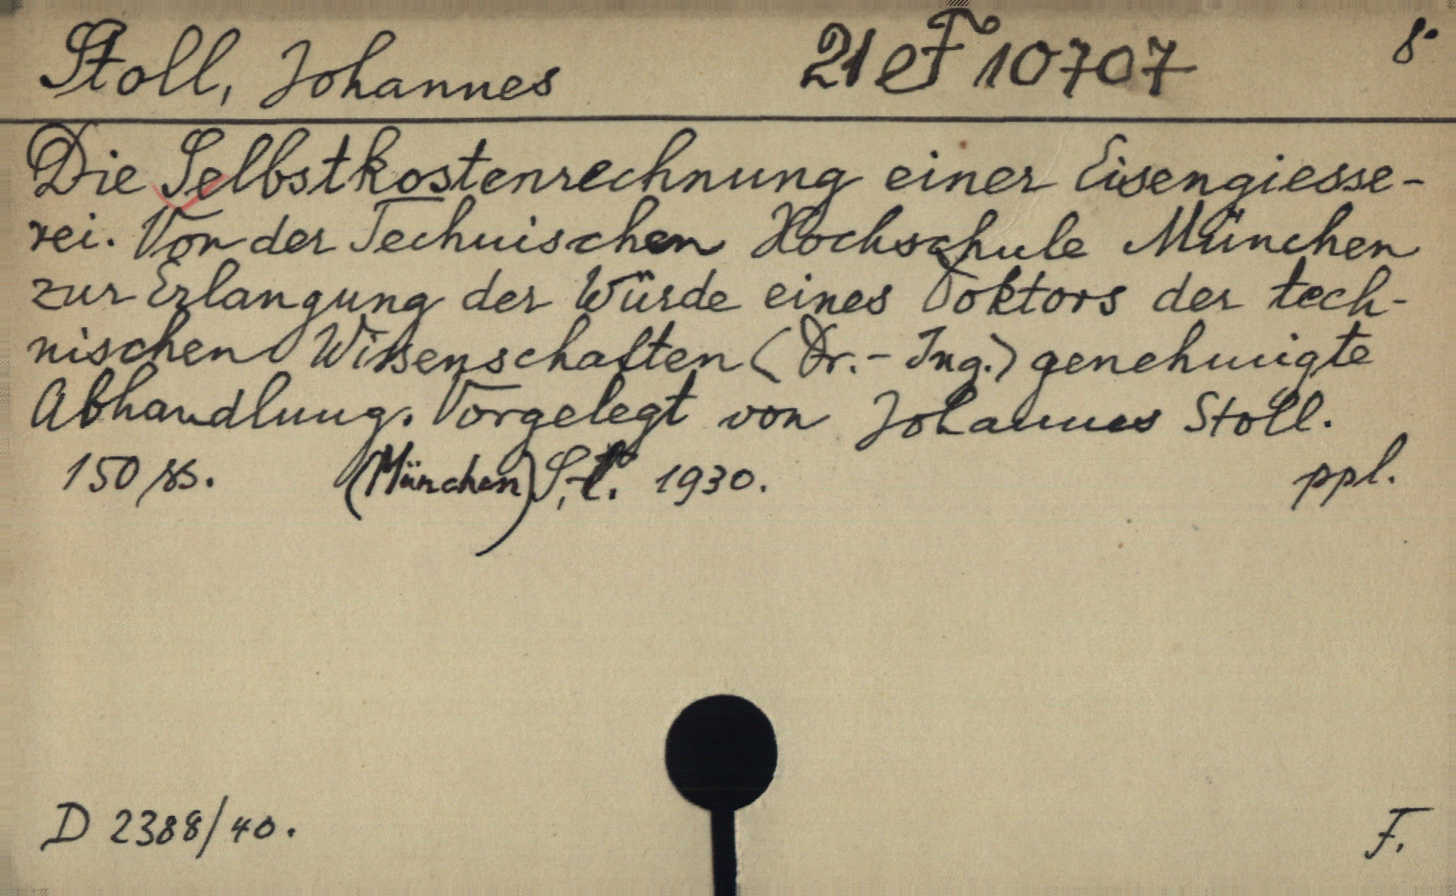 Stoll, Johannes 21 eF 10707 8°
Die Selbstkostenrechnung einer Eisengiesse-
rei. Von der Technischen Hochschule München
zur Erlangung der Würde eines Doktors der tech-
nischen Wissenschaften (Dr.-Ing.) genehmigte
Abhandlung. Vorgelegt von Johannes Stoll.
150 ss. (München) S. l. 1930. ppl.
D 2388/40. F.